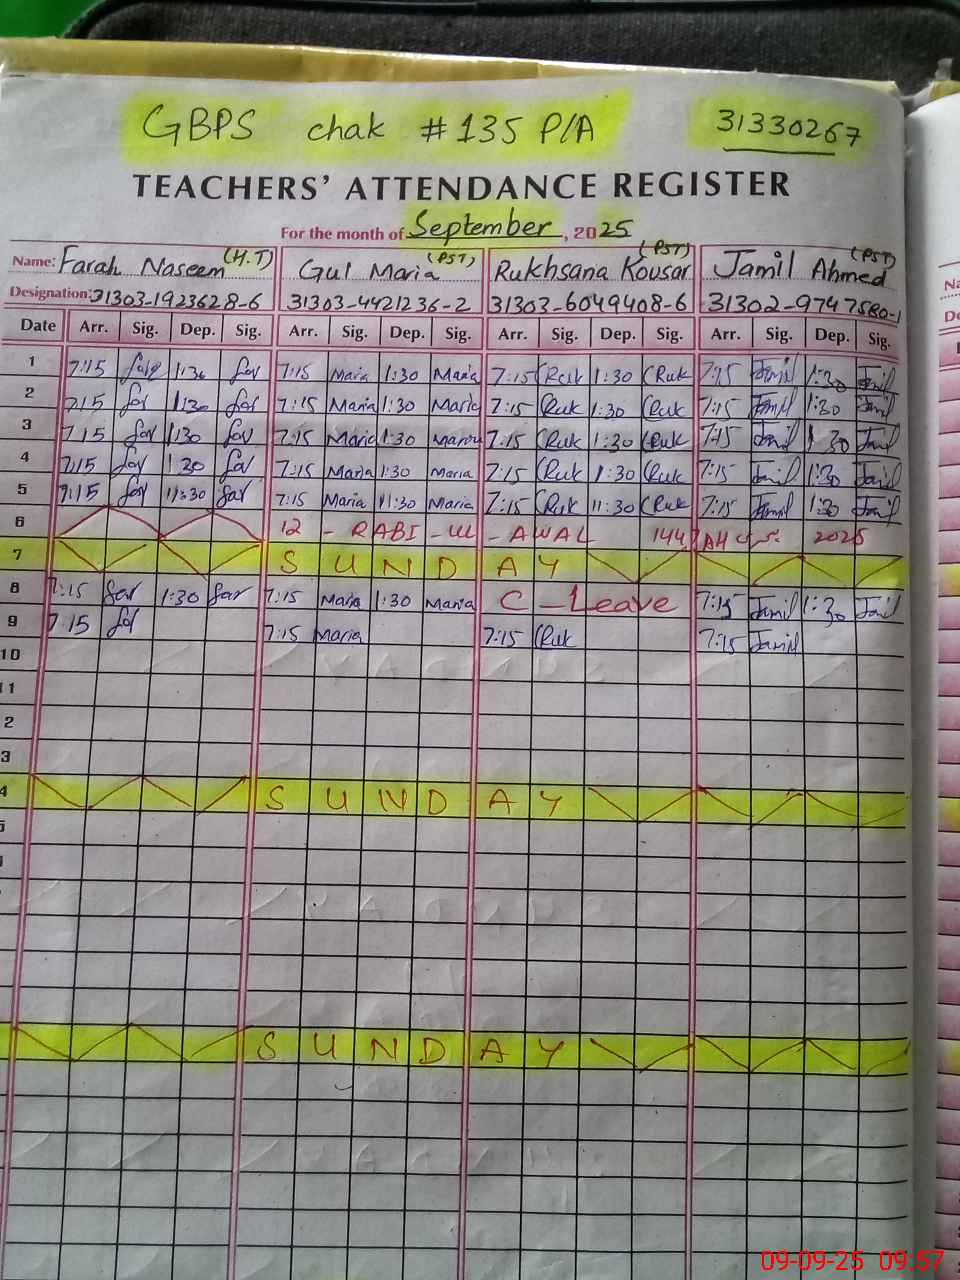 GBPS chak # 135 P/A 31330267
TEACHERS' ATTENDANCE REGISTER
For the month of September, 2025
Name: Farah Naseem (H.T) Gul Maria (PST) Rukhsana Kousar (PST) Jamil Ahmed (PST)
Designation: 31303-1923628-6 31303-4421236-2 31303-6049408-6 31302-9747580-1
Date Arr. Sig. Dep. Sig. Arr. Sig. Dep. Sig. Arr. Sig. Dep. Sig. Arr. Sig. Dep. Sig.
1 7:15 1:30 7:15 Maria 1:30 Maria 7:15 Ruk 1:30 Ruk 7:15 Jamil 1:30 Jamil
2 7:15 1:30 7:15 Maria 1:30 Maria 7:15 Ruk 1:30 Ruk 7:15 Jamil 1:30 Jamil
3 7:15 1:30 7:15 Maria 1:30 Maria 7:15 Ruk 1:30 Ruk 7:15 Jamil 1:30 Jamil
4 7:15 1:30 7:15 Maria 1:30 Maria 7:15 Ruk 1:30 Ruk 7:15 Jamil 1:30 Jamil
5 7:15 11:30 7:15 Maria 11:30 Maria 7:15 Ruk 11:30 Ruk 7:15 Jamil 1:30 Jamil
6 12 - RABI - UL - AWAL 1447 AH 2025
7 SUNDAY
8 7:15 1:30 7:15 Maria 1:30 Maria C - Leave 7:15 Jamil 1:30 Jamil
9 7:15 7:15 Maria 7:15 Ruk 7:15 Jamil
10
11
2
3
4 SUNDAY
5
SUNDAY
09-09-25 09:57